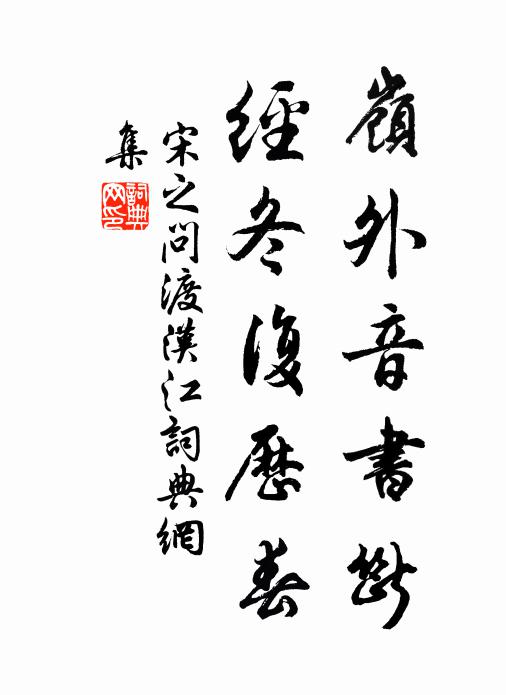 嶺外音書斷
經冬復歷春
宋之问渡漢江詞典網
集
詞典网印